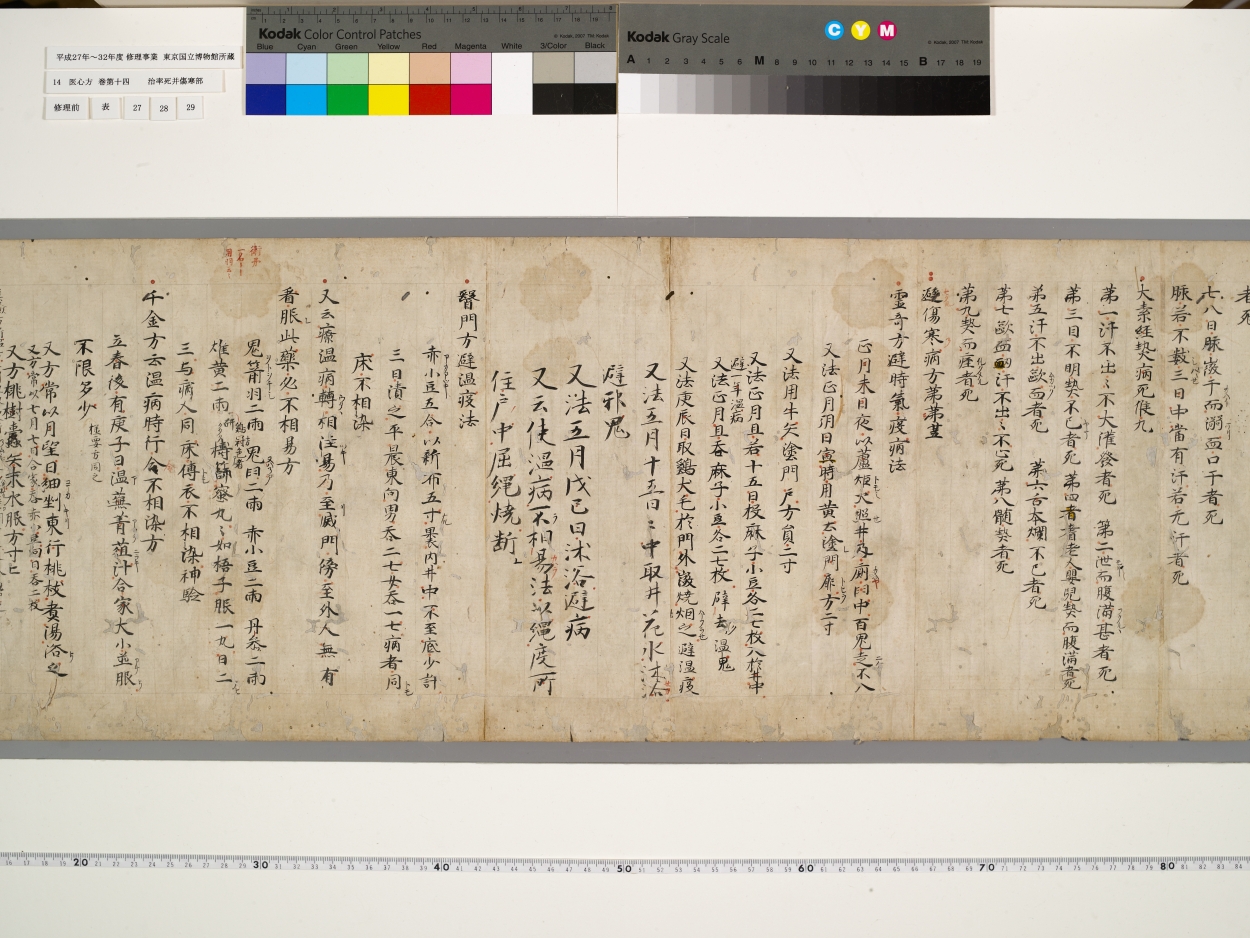 平成27年～32年度 修理事業 東京国立博物館所蔵
14 医心方 巻第十四 治卒死并傷寒部
修理前 表 27 28 29
Kodak Color Control Patches
© Kodak, 2007 TM: Kodak
Blue Cyan Green Yellow Red Magenta White 3/Color Black
Kodak Gray Scale
C Y M
© Kodak, 2007 TM: Kodak
A 1 2 3 4 5 6 M 8 9 10 11 12 13 14 15 B 17 18 19
者死
七八日脉微千而溺血口干者死
脉若不數三日中當有汗若无汗者死
大素經熱病死候九
第一汗不出不大灌發者死 第二世而腹滿甚者死
第三目不明熱不已者死 第四耆老人嬰兒熱而腹滿者死
第五汗不出歐血者死 第六舌本爛不已者死
第七歐血汗不出死 第八髓熱者死
第九熱而痙者死
避傷寒病方第
靈奇方避時氣疫病法
正月未日夜以蘆炬火照井及廁中百鬼走不入
又法正月朔日寅時用黄土塗門扉方二寸
又法用牛矢塗門戶方員二寸
又法正月旦若十五日投麻子小豆各二七枚入於井中
避一年溫病
又法正月旦吞麻子小豆各二七枚辟去溫鬼
又法庚辰日取鷄犬毛於門外微燒烟之避温疫
又法五月十五日中取井花水沐浴
避邪鬼
又法五月戊己日沐浴避病
又云使溫病不相易法以繩度所
住戶中屈繩燒断之
醫門方避温疫法
赤小豆五合以新布五寸裹内井中不至底少許
三日漬之平晨東向男吞二七女吞一七病者同
床不相染
又云療温病轉相注易乃至滅門傍至外人無有
看脤此藥必不相易方
鬼箭羽二兩 鬼臼二兩 赤小豆二兩 丹參二兩
雄黄二兩 擣篩蜜丸如梧子脤一丸日二
三与病人同床傳衣不相染神驗
千金方云温病時行令不相染方
立春後有庚子日温蕪菁葅汁合家大小並脤
不限多少
又方常以月望日細剉東行桃枝煮湯浴之
又方常以七月七日合家吞赤小豆向日吞二七枚
又方桃樹蠹矢末水脤方寸匕
20 30 40 50 60 70 80